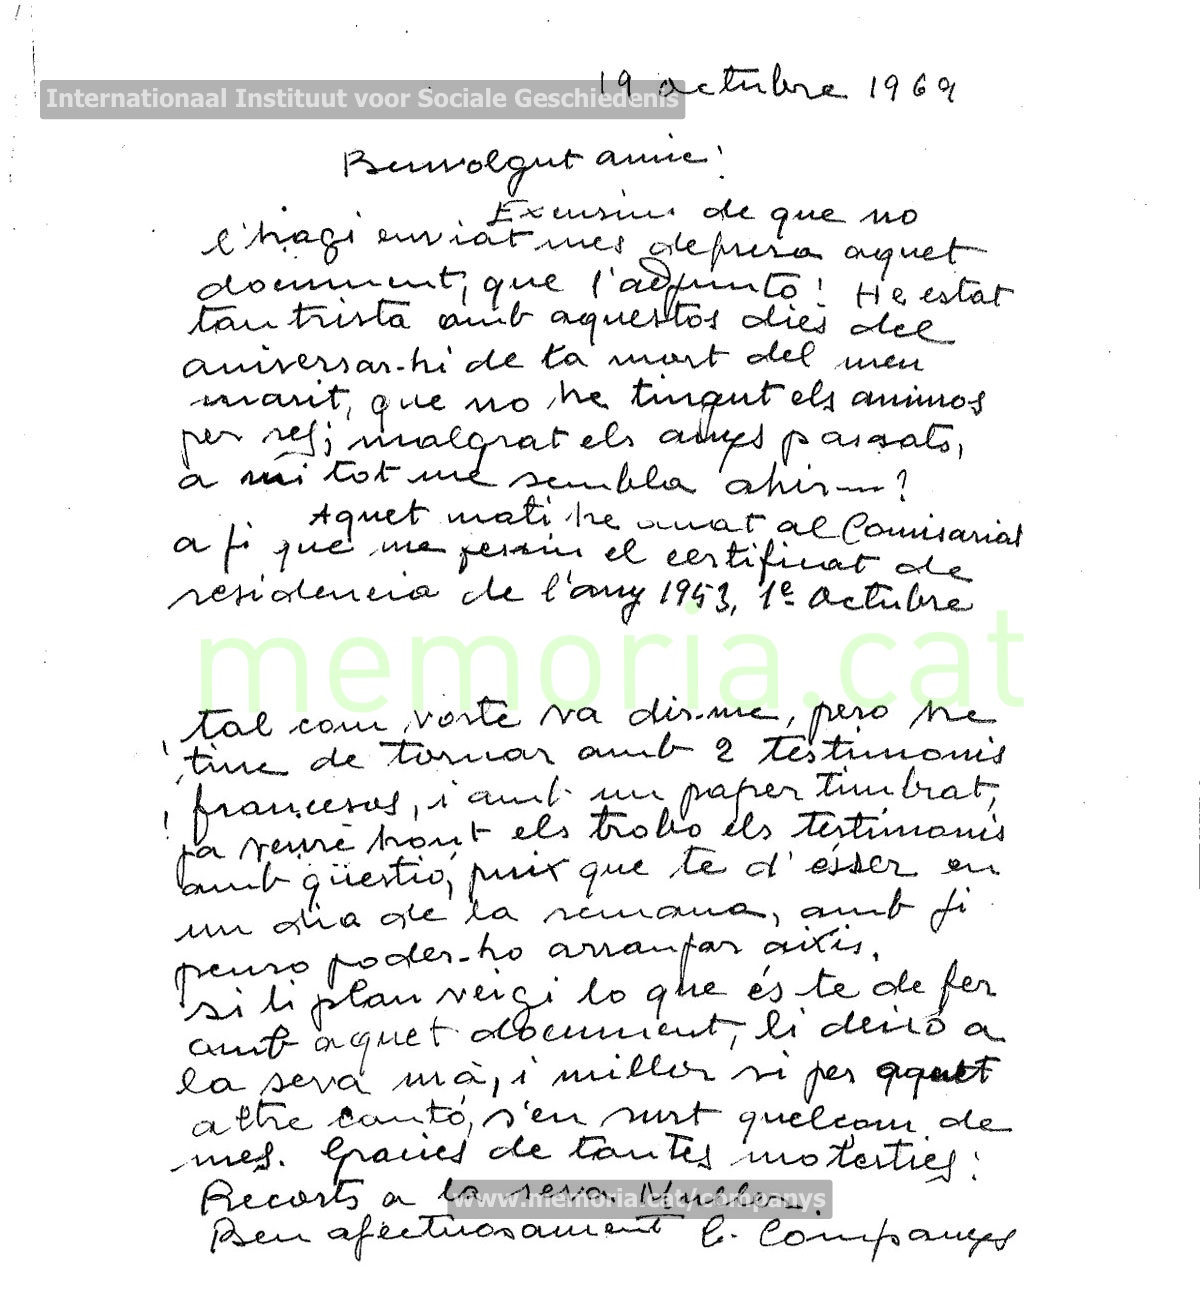 19 octubre 1969
Internationaal Instituut voor Sociale Geschiedenis
Benvolgut amic!
Excusim de que no
l'hagi enviat mes depresa aquet
document, que l'adjunto! He estat
tan trista amb aquestos dies del
aniversar-hi de la mort del meu
marit, que no he tingut els animos
per res; malgrat els anys passats,
a mi tot me sembla ahir—?
Aquet mati he anat al Comisariat
a fi que me fessin el certificat de
residencia de l'any 1953, 1e octubre
memoria.cat
tal com vosté va dir-me, pero he
tinc de tornar amb 2 testimonis
francesos, i amb un paper timbrat,
ja veuré hont els trobo els testimonis
amb qüestió, puix que te d'ésser en
un dia de la semana, amb fi
penso poder-ho arranjar aixis.
Si li plau veigi lo que és te de fer
amb aquet document, li deixo a
la seva mà, i millor si per aquet
altre cantó, s'en surt quelcom de
més. Gracies de tantes molesties!
Recorts a la seva Muller.
www.memoria.cat/companys
Ben afectuosament C. Companys